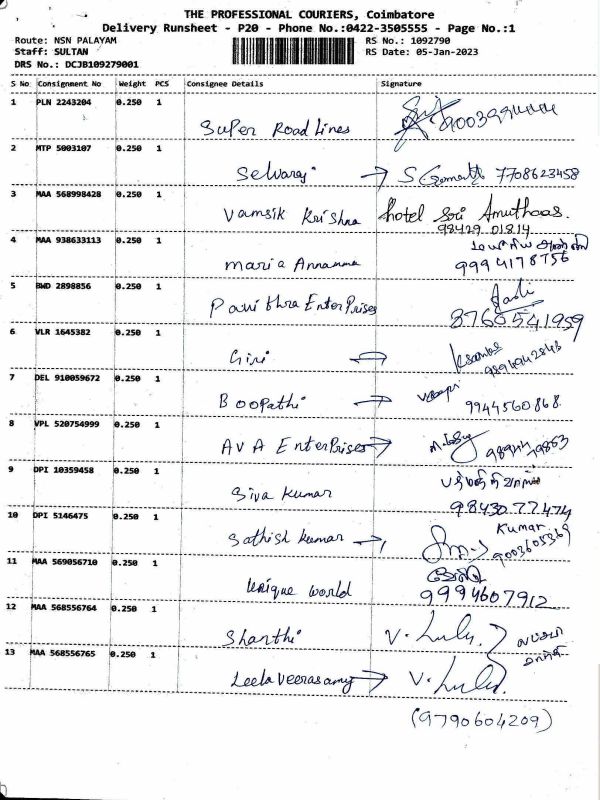 THE PROFESSIONAL COURIERS, Coimbatore
Delivery Runsheet - P20 - Phone No.:0422-3505555 - Page No.:1
Route: NSN PALAYAM
RS No.: 1092790
Staff: SULTAN
RS Date: 05-Jan-2023
DRS No.: DCJB109279001
S No Consignment No Weight PCS Consignee Details Signature
1 PLN 2243204 0.250 1
Super Road Lines
2 MTP 5003107 0.250 1
Selvaraj → 7708623458
3 MAA 568998428 0.250 1
Vamsik Krishna hotel Sri Amuthaas.
98429 01814
4 MAA 938633113 0.250 1
Maria Annamma 9994178756
5 BWD 2898856 0.250 1
Pavithra EnterPrises 8760541959
6 VLR 1645382 0.250 1
Giri →
7 DEL 910059672 0.250 1
Boopathi → 9944560868
8 VPL 520754999 0.250 1
AVA EnterPrises →
9 DPI 10359458 0.250 1
Siva Kumar 9843077474
10 DPI 5146475 0.250 1
Kumar
Sathish Kumar → 9003605369
11 MAA 569056710 0.250 1
Unique World 9994607912
12 MAA 568556764 0.250 1
Shanthi
13 MAA 568556765 0.250 1
Leela Veerasamy →
(9790604209)